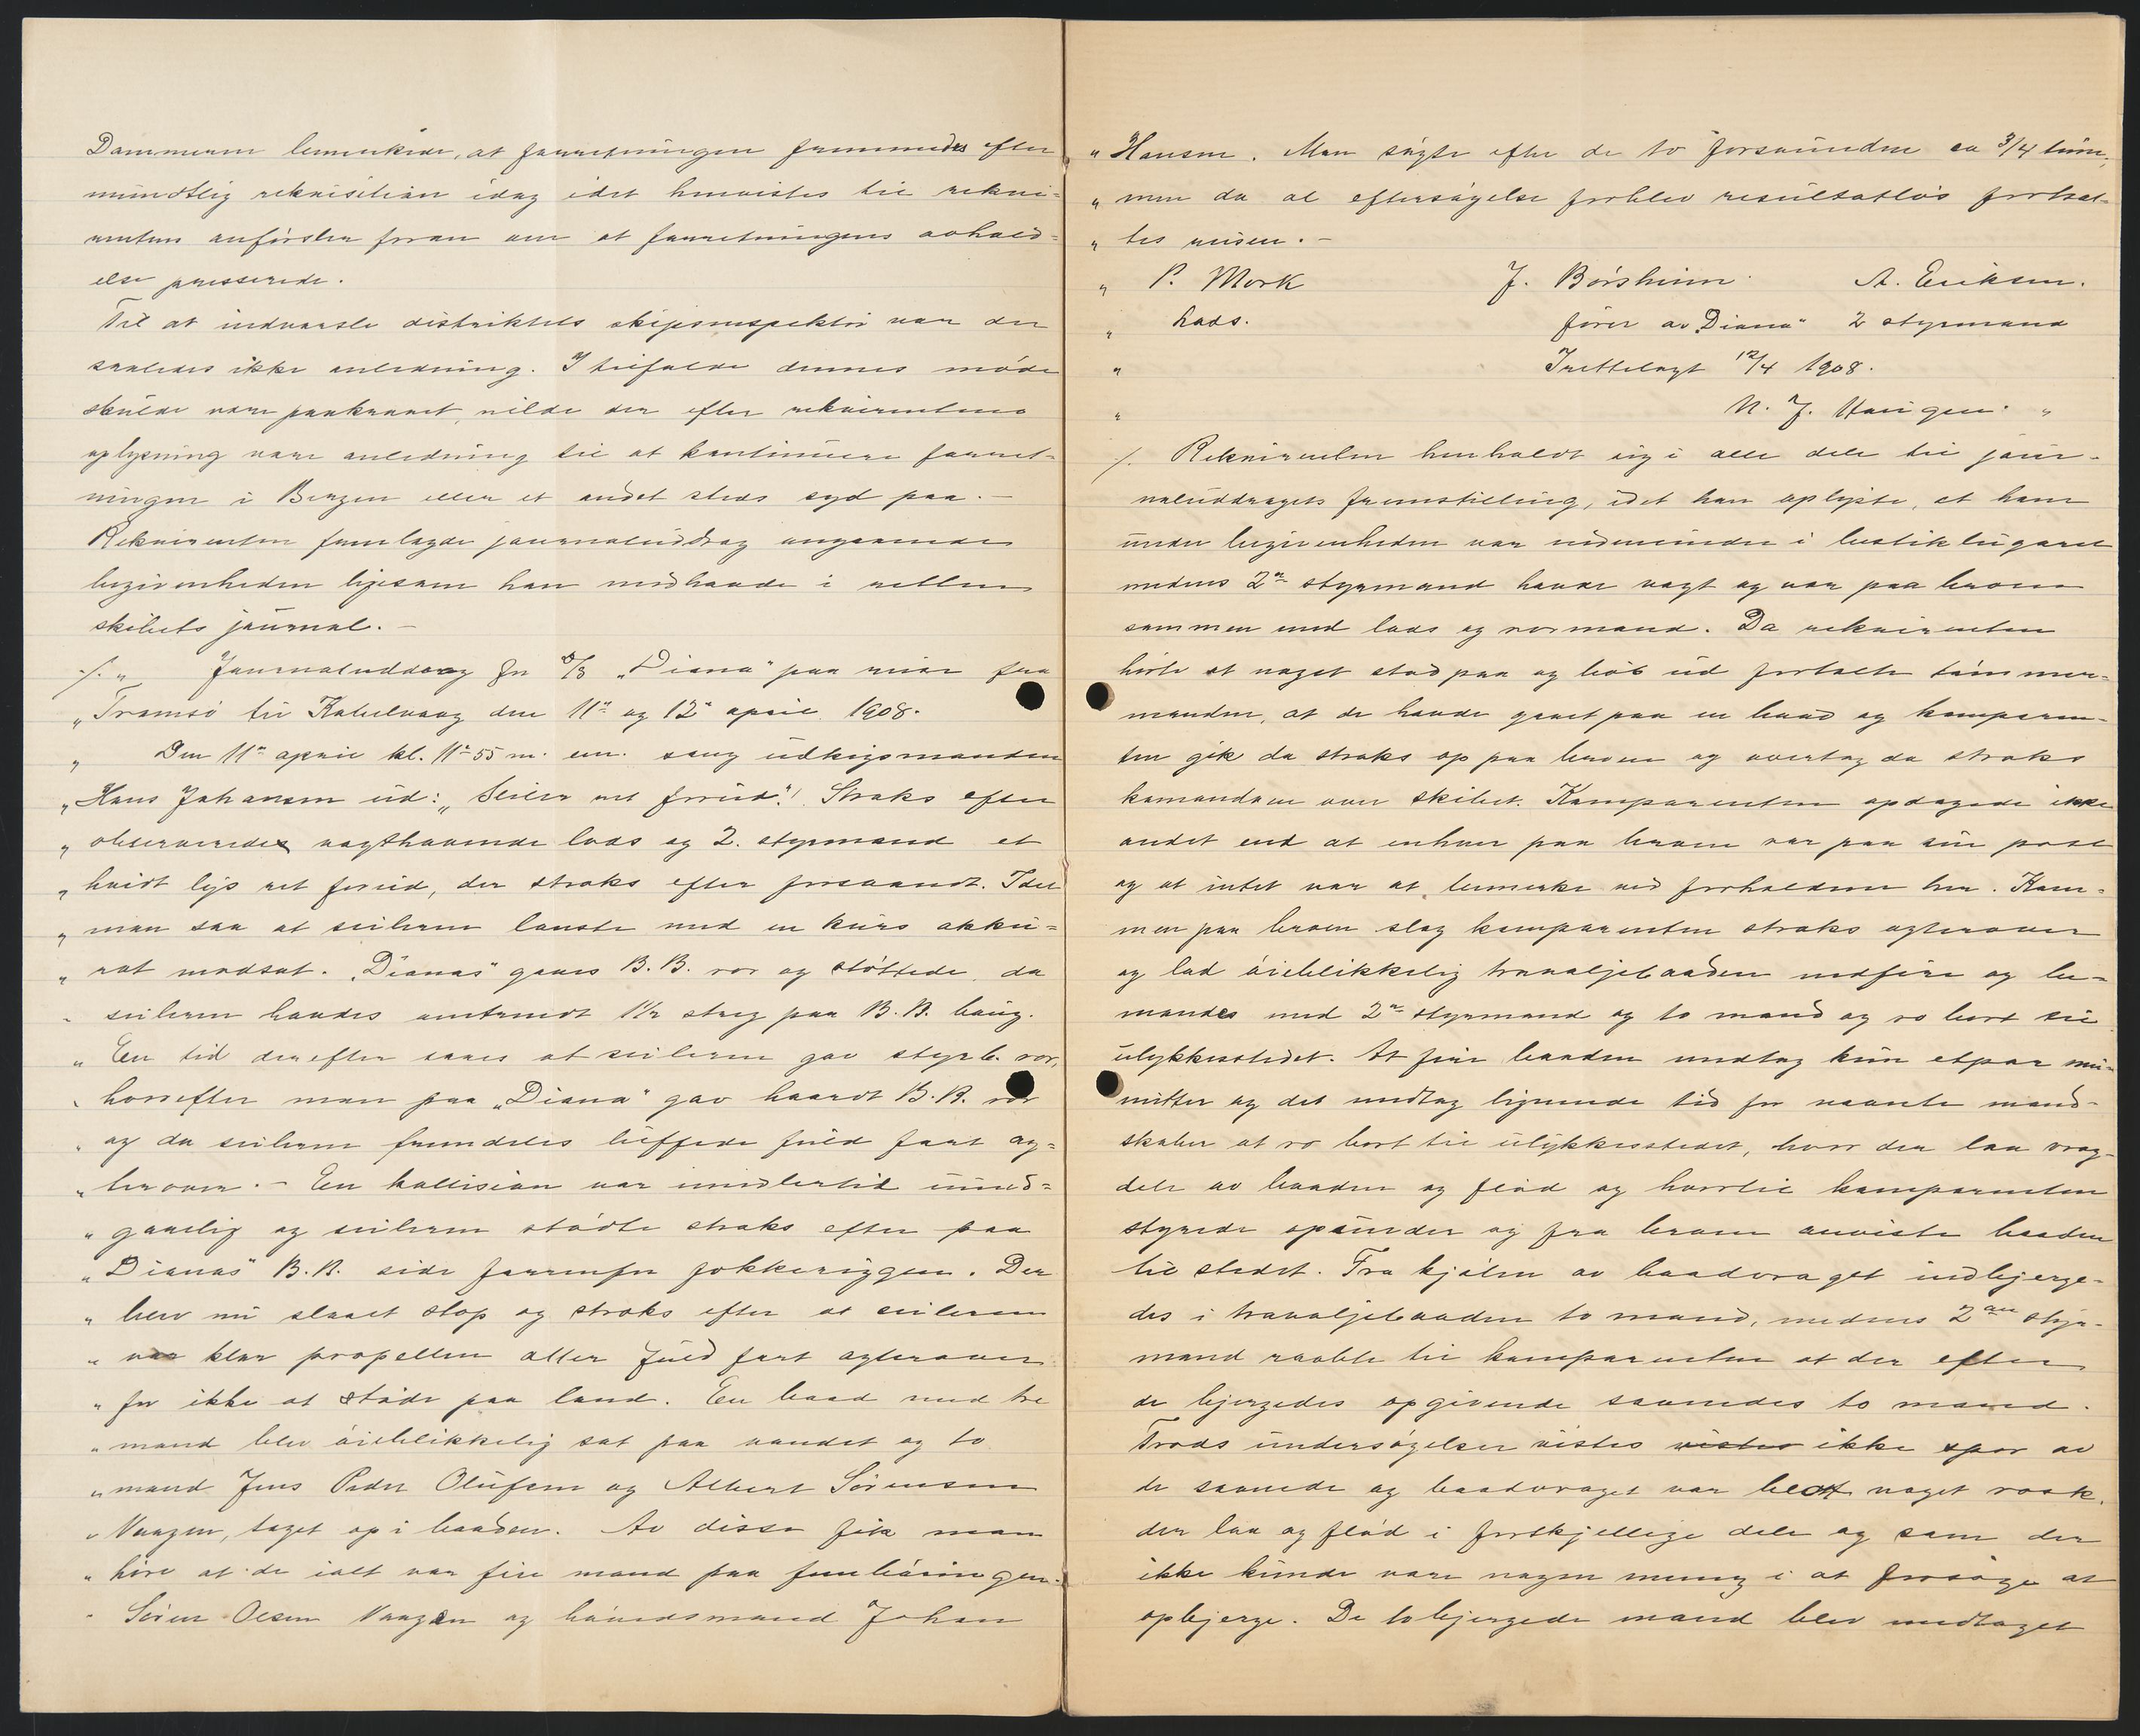 Dommeren bemerkede, at forretningen fremmedes efter
mundtlig rekvisition idag idet henvistes til rekvi-
rentens anförsler foran om at forretningens avhold-
else presserede.
Til at indvarsle distriktets skipsinspektör var der
saaledes ikke anledning. I tilfælde dennes möde
skulde være paakrævet, vilde der efter rekvirentens
oplysning være anledning til at kontinuere forret-
ningen i Bergen eller et andet steds syd paa. —
Rekvirenten fremlagde journaluddrag angaaende
begivenheden ligesom han medhavde i retten
skibets journal. —
./. „ Journaluddrag for D/S „Diana" paa reise fra
„ Tromsö til Kabelvaag den 11te og 12te april 1908.
„ Den 11te april kl. 11t 55 m. em. sang udkigsmanden
„ Hans Johansen ud: „Seiler ret forud"! Straks efter
„ observeredes vagthavende lods og 2. styrmand et
„ hvidt lys ret forud, der straks efter forsvandt. Idet
„ man saa at seileren lænste med en kurs akku-
„ rat modsat. „Dianas" gaves B.B. ror og stöttede, da
„ seileren havdes omtrendt 1½ streg paa B.B. baug.
„ En tid derefter saaes at seileren gav styrb. ror,
„ hvorefter man paa „Diana" gav haardt B.B. ror
„ og da seileren fremdeles luffede fuld fart ag-
„ terover. — En kollision var imidlertid uund-
„ gaaelig og seileren stödte straks efter paa
„ Dianas" B.B. side forrenfor fokkeriggen. Der
„ blev nu slaaet stop og straks efter at seileren
„ var klar propellen atter fuld fart agterover
„ for ikke at stöde paa land. En baad med tre
„ mand blev öieblikkelig sat paa vandet og to
„ mand Jens Peder Olufsen og Albert Sörensen
„ Vaagen, taget op i baaden. Av disse fik man
„ höre at de ialt var fire mand paa femböringen.
„ Sören Olsen Vaagen og haandsmand Johan
„ Hansen. Man sögte efter de to forsvundne ca 3/4 time,
„ men da al eftersögelse forblev resultatlös fortsat-
„ tes reisen. —
„ P. Mork J. Börsheim A. Eriksen.
„ Lods. förer av „Diana" 2 styrmand
„ Irettelagt 12/4 1908.
„ N. J. Haugen. „
./. Rekvirenten henholdt sig i alle dele til jour-
naluddragets fremstilling, idet han oplyste, at han
under begivenheden var nedenunder i bestiklugaret
medens 2n styrmand havde vagt og var paa broen
sammen med lods og rormand. Da rekvirenten
hörte at noget stod paa og löb ud fortalte tömmer-
manden, at de havde gaaet paa en baad og komparen-
ten gik da straks op paa broen og overtog da straks
kommandoen over skibet. Komparenten opdagede ikke
andet end at enhver paa broen var paa sin post
og at intet var at bemerke ved forholdene her. Kom-
men paa broen slog komparenten straks agterover
og lod öieblikkelig travaljebaaden nedfire og be-
mandes med 2n styrmand og to mand og ro bort til
ulykkesstedet. At fire baaden medtog kun etpar mi-
nutter og det medtog lignende tid for nævnte mand-
skaber at ro bort til ulykkesstedet, hvor der laa vrag-
dele av baaden og flöd og hvortil komparenten
styrede opunder og fra broen anviste baaden
til stedet. Fra kjölen av baadvraget indbjerge-
des i travaljebaaden to mand, medens 2den styr-
mand raabte til komparenten at der efter
de bjergedes opgivende savnedes to mand.
Trods undersögelser vistes vistes ikke spor av
de savnede og baadvraget var blot noget vrak,
der laa og flöd i forskjellige dele og som der
ikke kunde være nogen mening i at forsöge at
opbjerge. De to bjergede mand blev medtaget